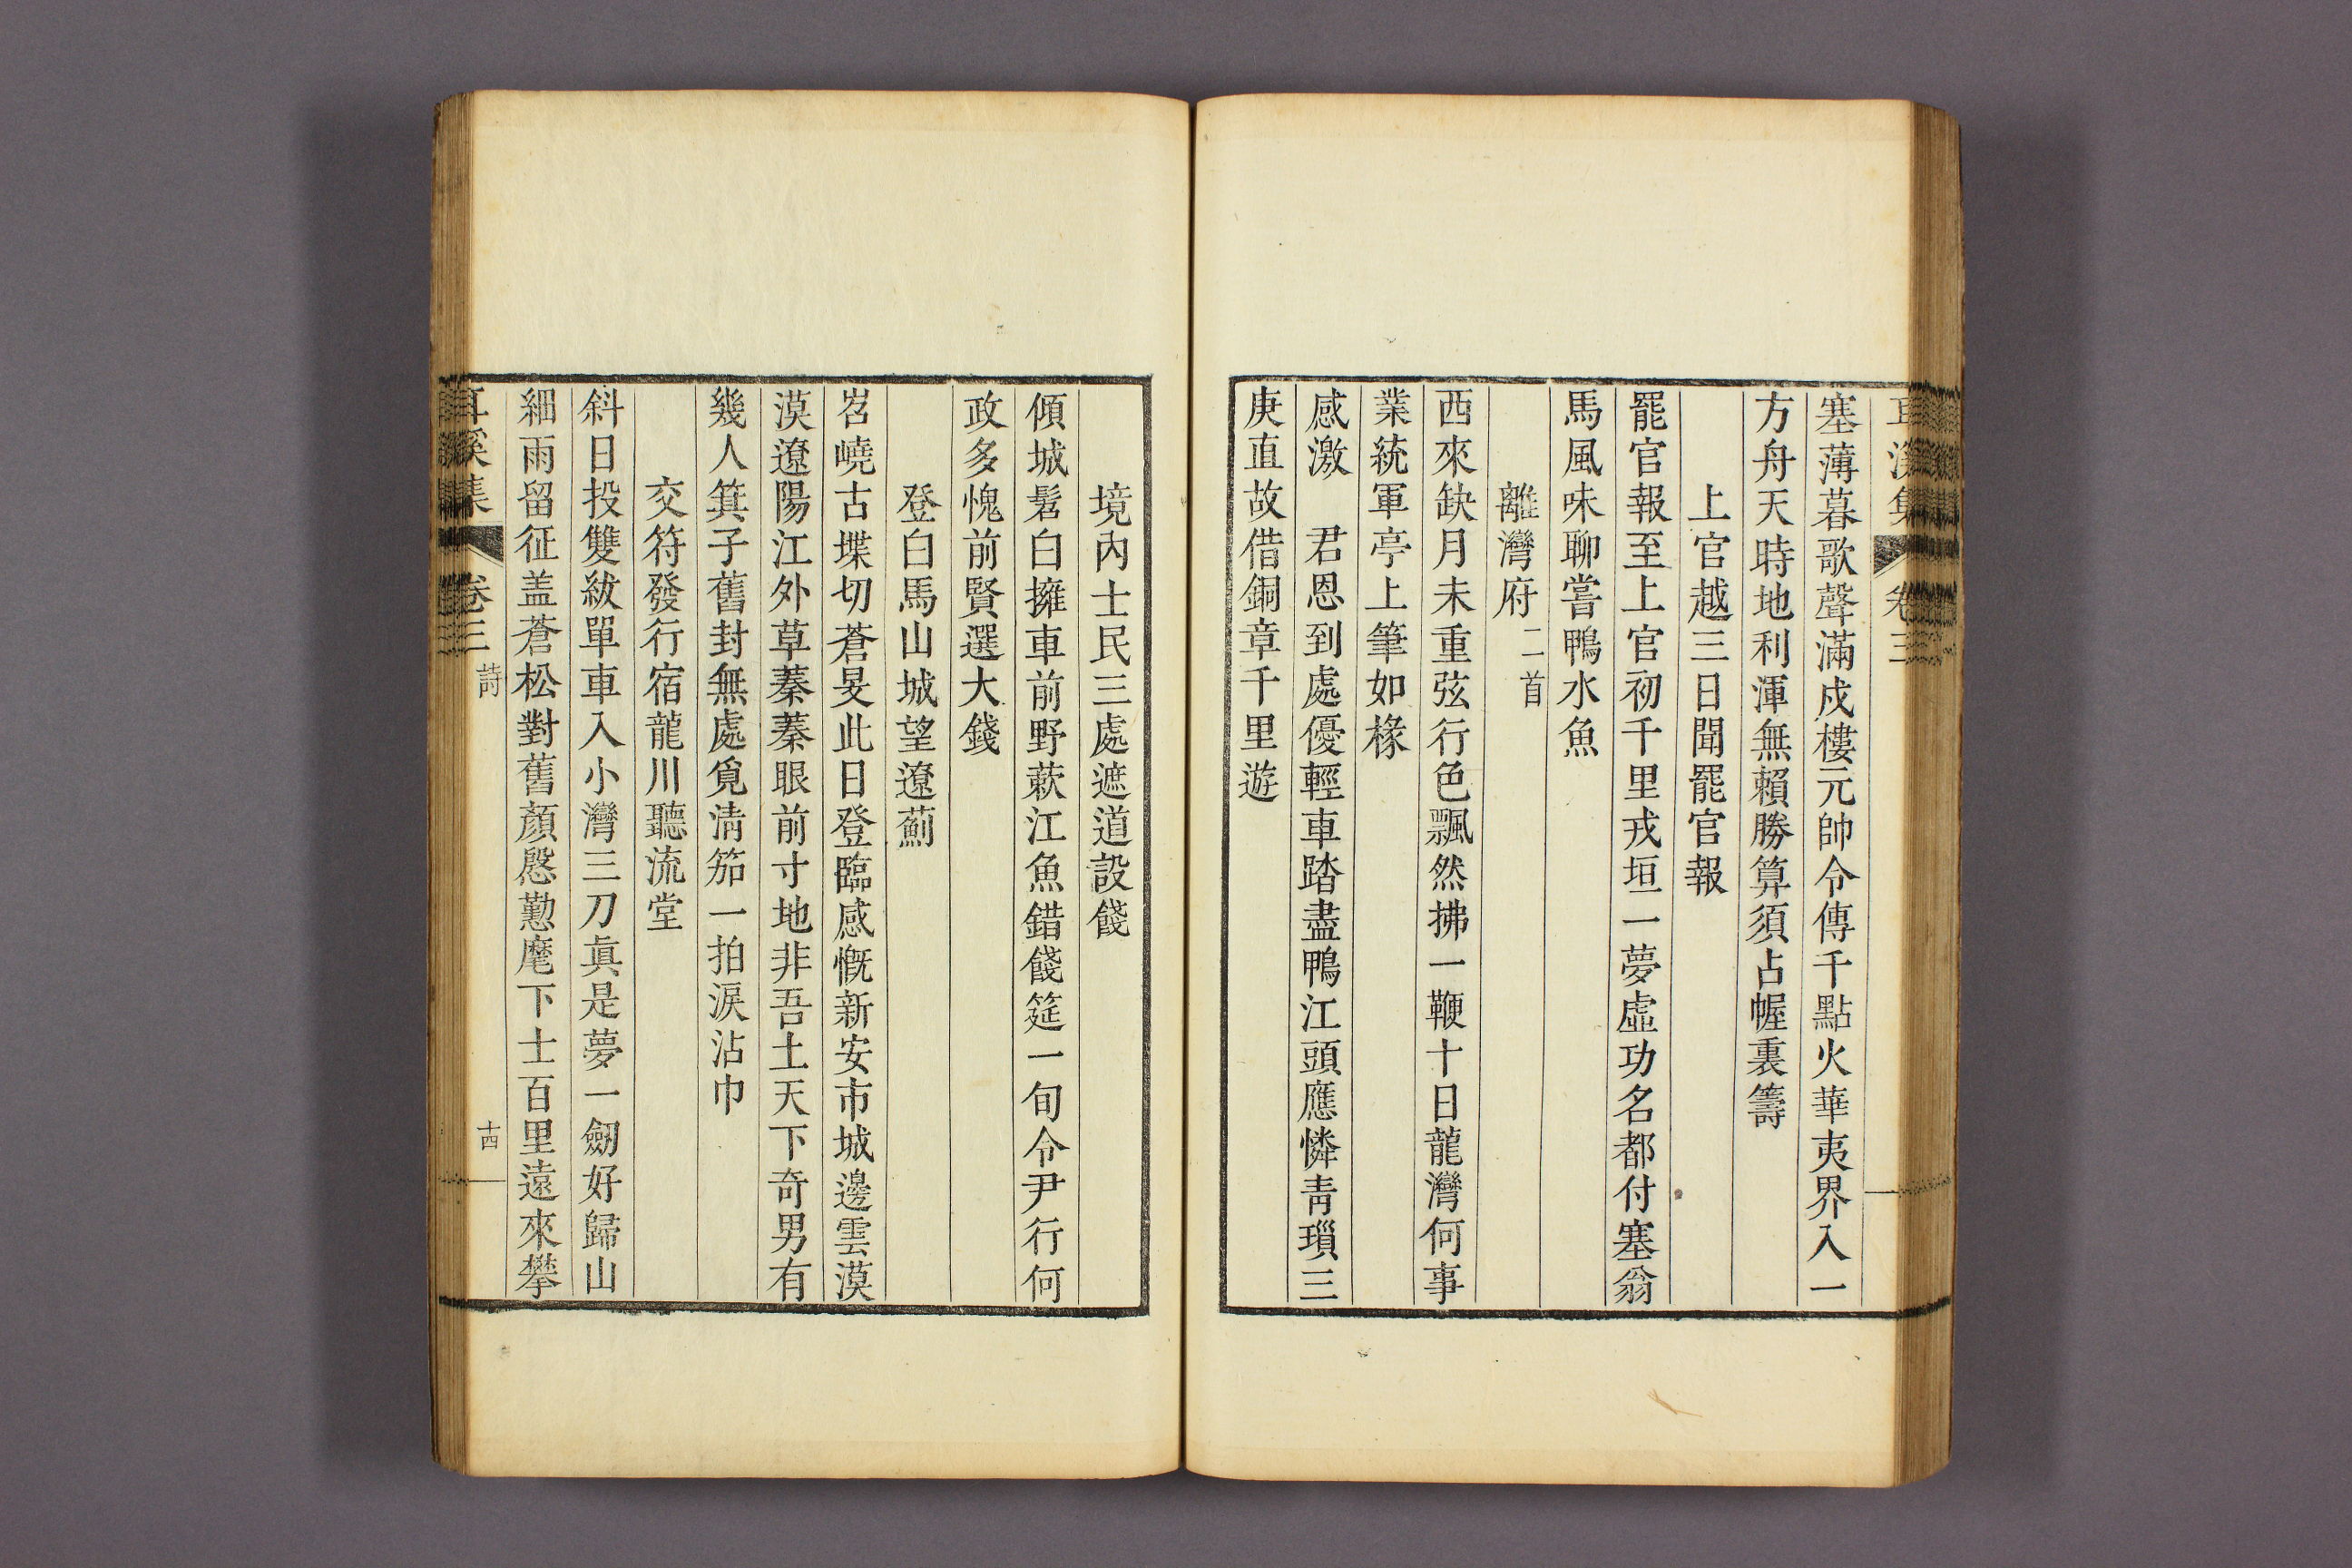 耳溪集 卷三
塞薄暮歌聲滿戍樓元帥令傳千點火華夷界入一
方舟天時地利渾無賴勝算須占幄裏籌
上官越三日聞罷官報
罷官報至上官初千里戎垣一夢虛功名都付塞翁
馬風味聊嘗鴨水魚
離灣府二首
西來缺月未重弦行色飄然拂一鞭十日龍灣何事
業統軍亭上筆如椽
感激 君恩到處優輕車踏盡鴨江頭應憐靑瑣三
庚直故借銅章千里遊
境內士民三處遮道設餞
傾城髫白擁車前野蔌江魚錯餞筵一旬令尹行何
政多愧前賢選大錢
登白馬山城望遼薊
岧嶢古堞切蒼旻此日登臨感慨新安市城邊雲漠
漠遼陽江外草蓁蓁眼前寸地非吾土天下奇男有
幾人箕子舊封無處覓淸笳一拍淚沾巾
交符發行宿龍川聽流堂
斜日投雙紱單車入小灣三刀眞是夢一劒好歸山
細雨留征盖蒼松對舊顏慇懃麾下士百里遠來攀
耳溪集 卷三 詩 十四